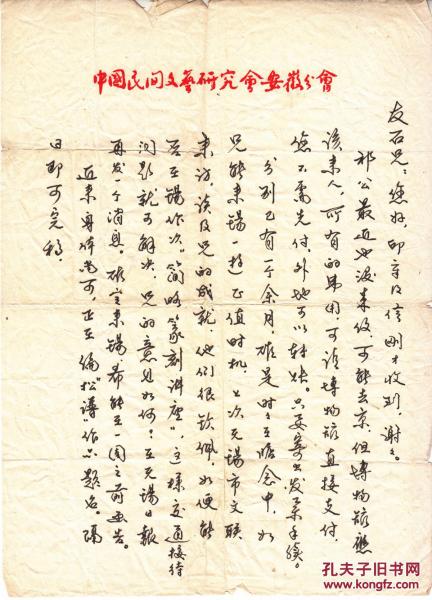 中國民间文藝研究會安徽分會
友石兄：您好，印章及信刚才收到，谢谢。
祁公最近也没来信，可能去京，但博物馆应
该来人，所有的费用可请博物馆直接支付，
您不需先付，外地可以转账。只要寄出发票手续。
分别已有一个余月，确是时时在念中，如
兄能来锡一趟正值时机，上次无锡市文联
来访，谈及兄的成就，他们很钦佩，如便能
否在锡作次“简略篆刻讲座”，这样交通接待
问题就可解决，兄的意见如何？在无锡日报
再发一个消息。确定来锡，希能在一周之前函告。
近来身体尚可，正在编松谱“作品题名。隔
日即可完稿，
孔夫子旧书网
www.kongfz.com